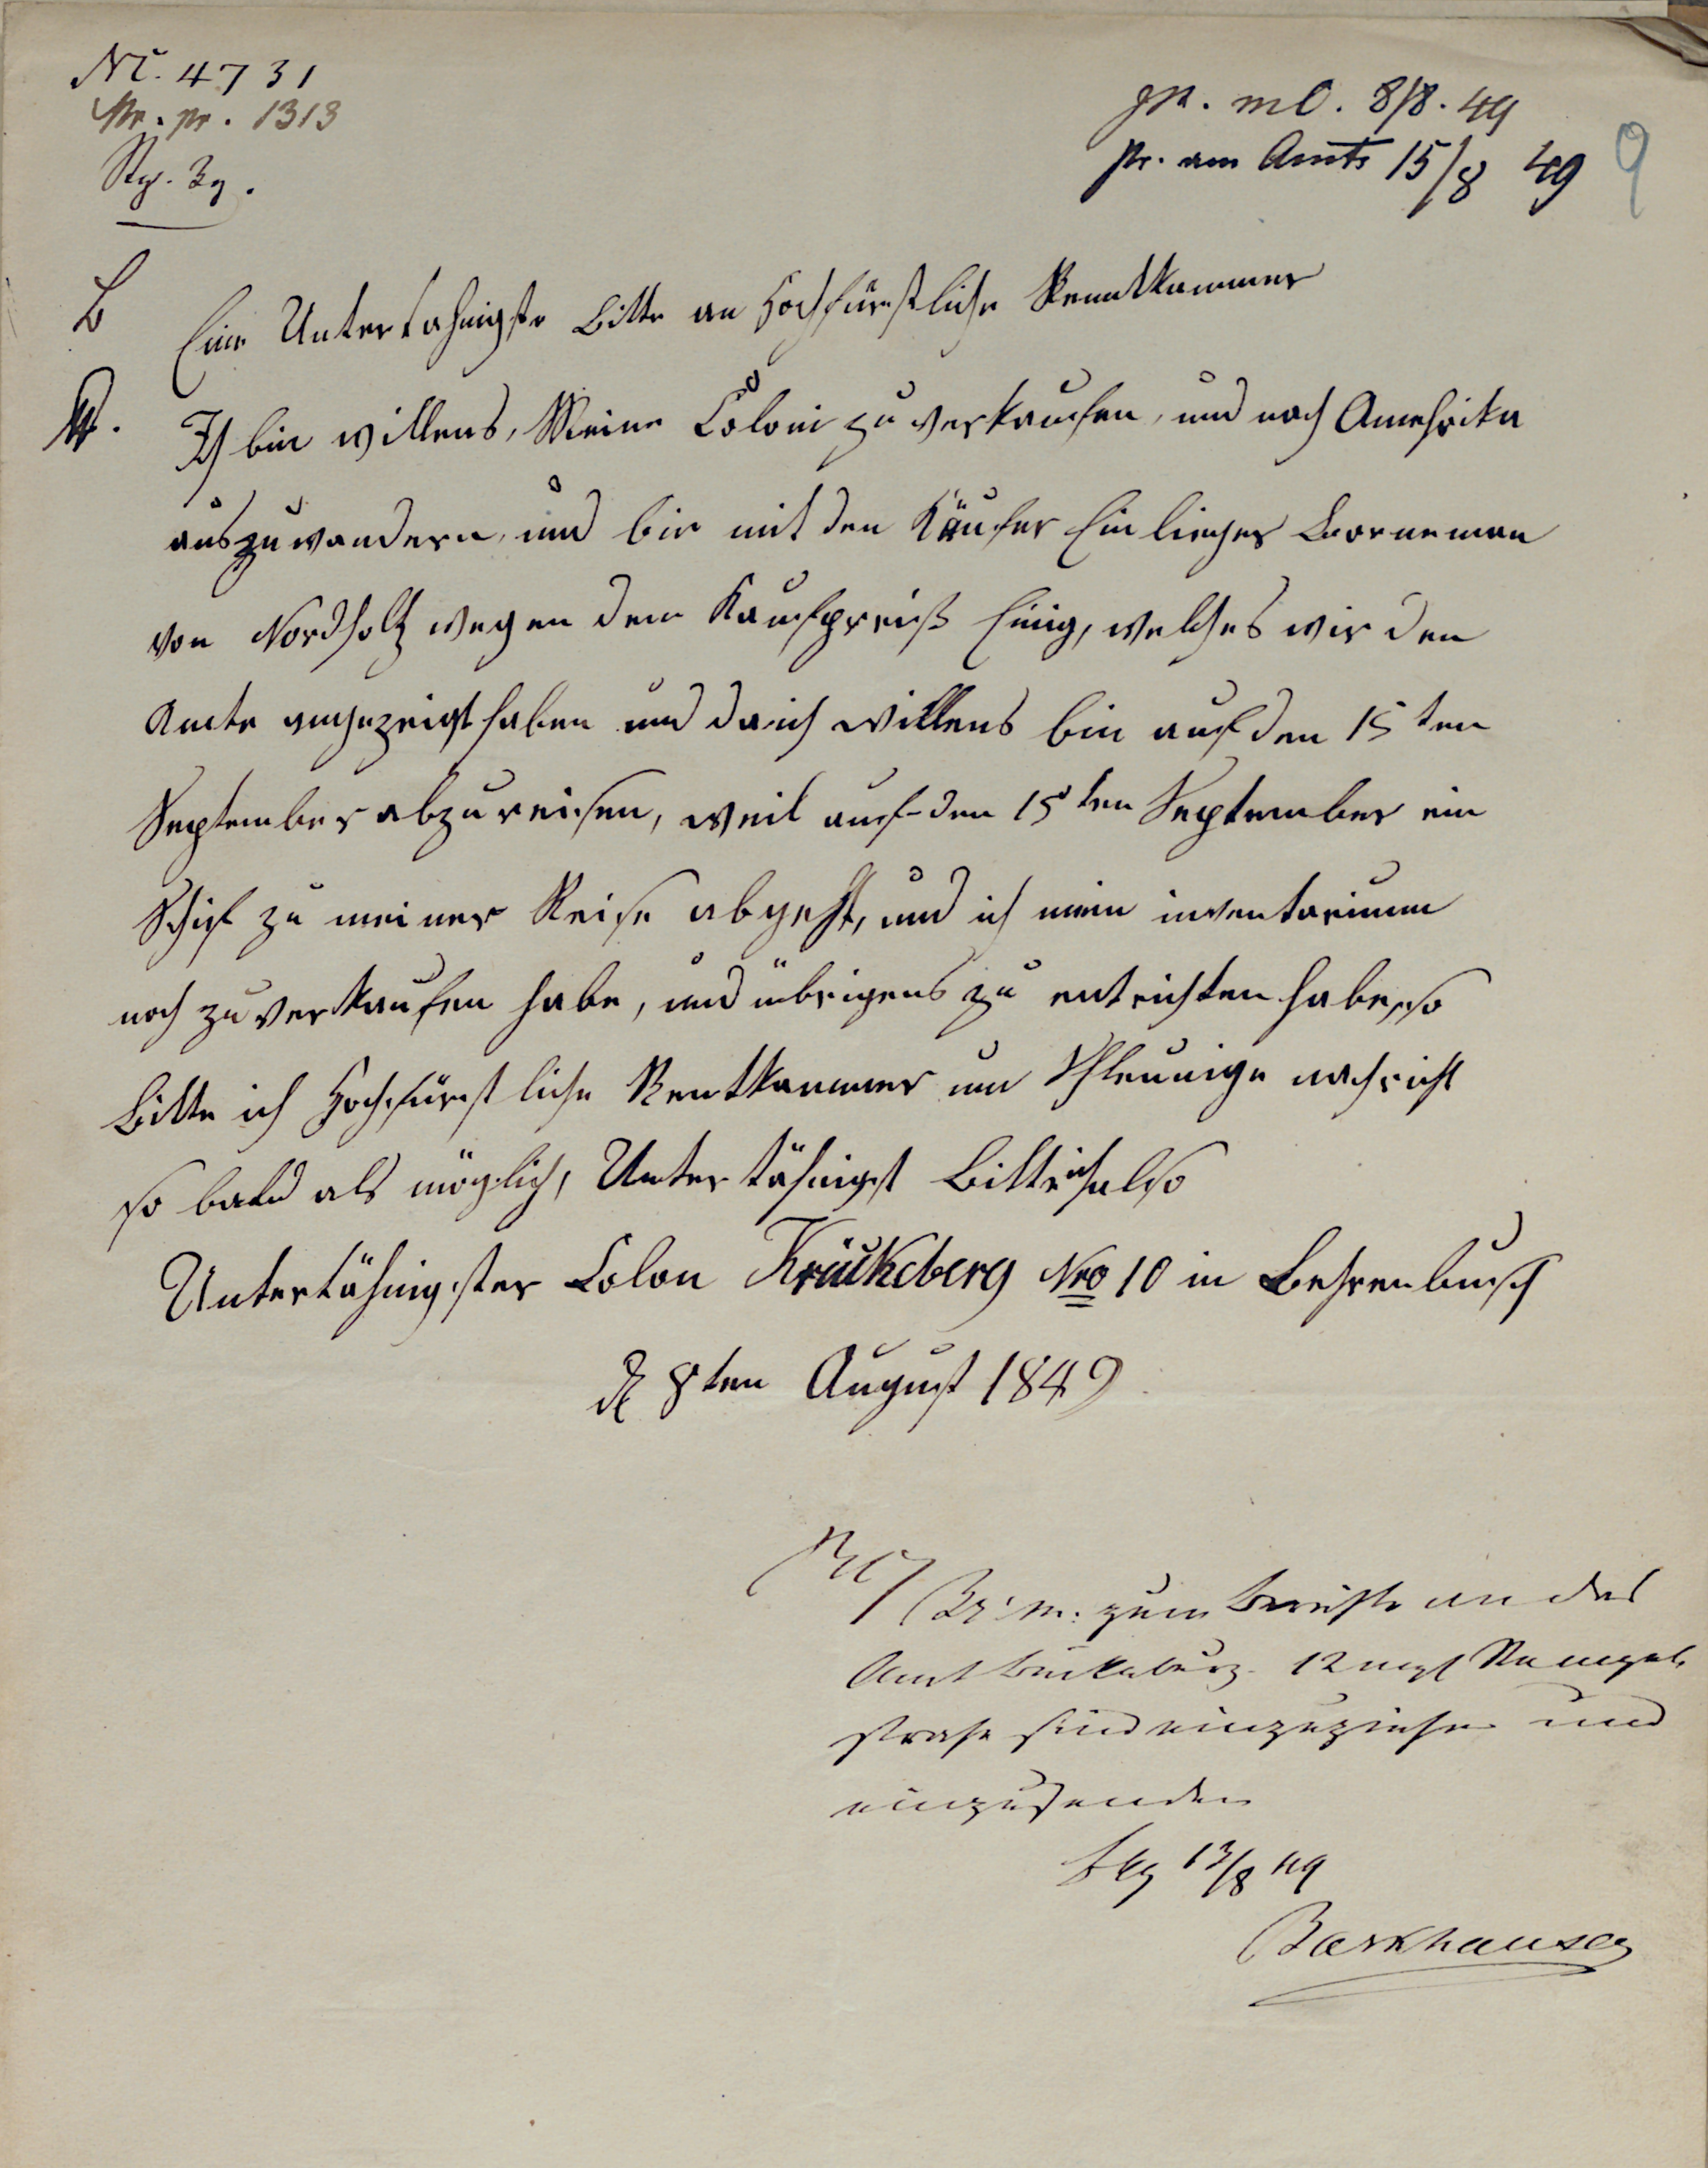 N. 4731
Nr. pr. 1313
pr. m C. 8/8. 49
pr. am Amte 15/8 49
9
B
Eine Untertahnigste Bitte an Hochfürstliche Renntkammer
Ich bin willens, Meine Coloni zu verkaufen, und nach Amehrika
auszuwandern, und bin mit den Käufer Einlieger Borneman
von Nordholtz wegen dem Kaufpreiß Einig, welches wir den
Amte angezeigt haben und da ich willens bin auf den 15ten
September abzureisen, weil auf den 15ten September ein
Schif zu meiner Reise abgeht, und ich mein inventarium
noch zu verkaufen habe, und übrigens zu entrichten habe, so
Bitte ich Hochfürstliche Rentkammer um Schleunige nachricht
so bald als möglich, Untertähnigst Bitte ich also
Untertähnigster Colon Krückeberg Nro 10 in Behrenbusch
d 8ten August 1849
zum Berichte an das
Amt Bückeburg. 12 mgl Stempel
strafe sind einzuziehen und
einzusenden
Bbg 13/8 49
Barkhausen